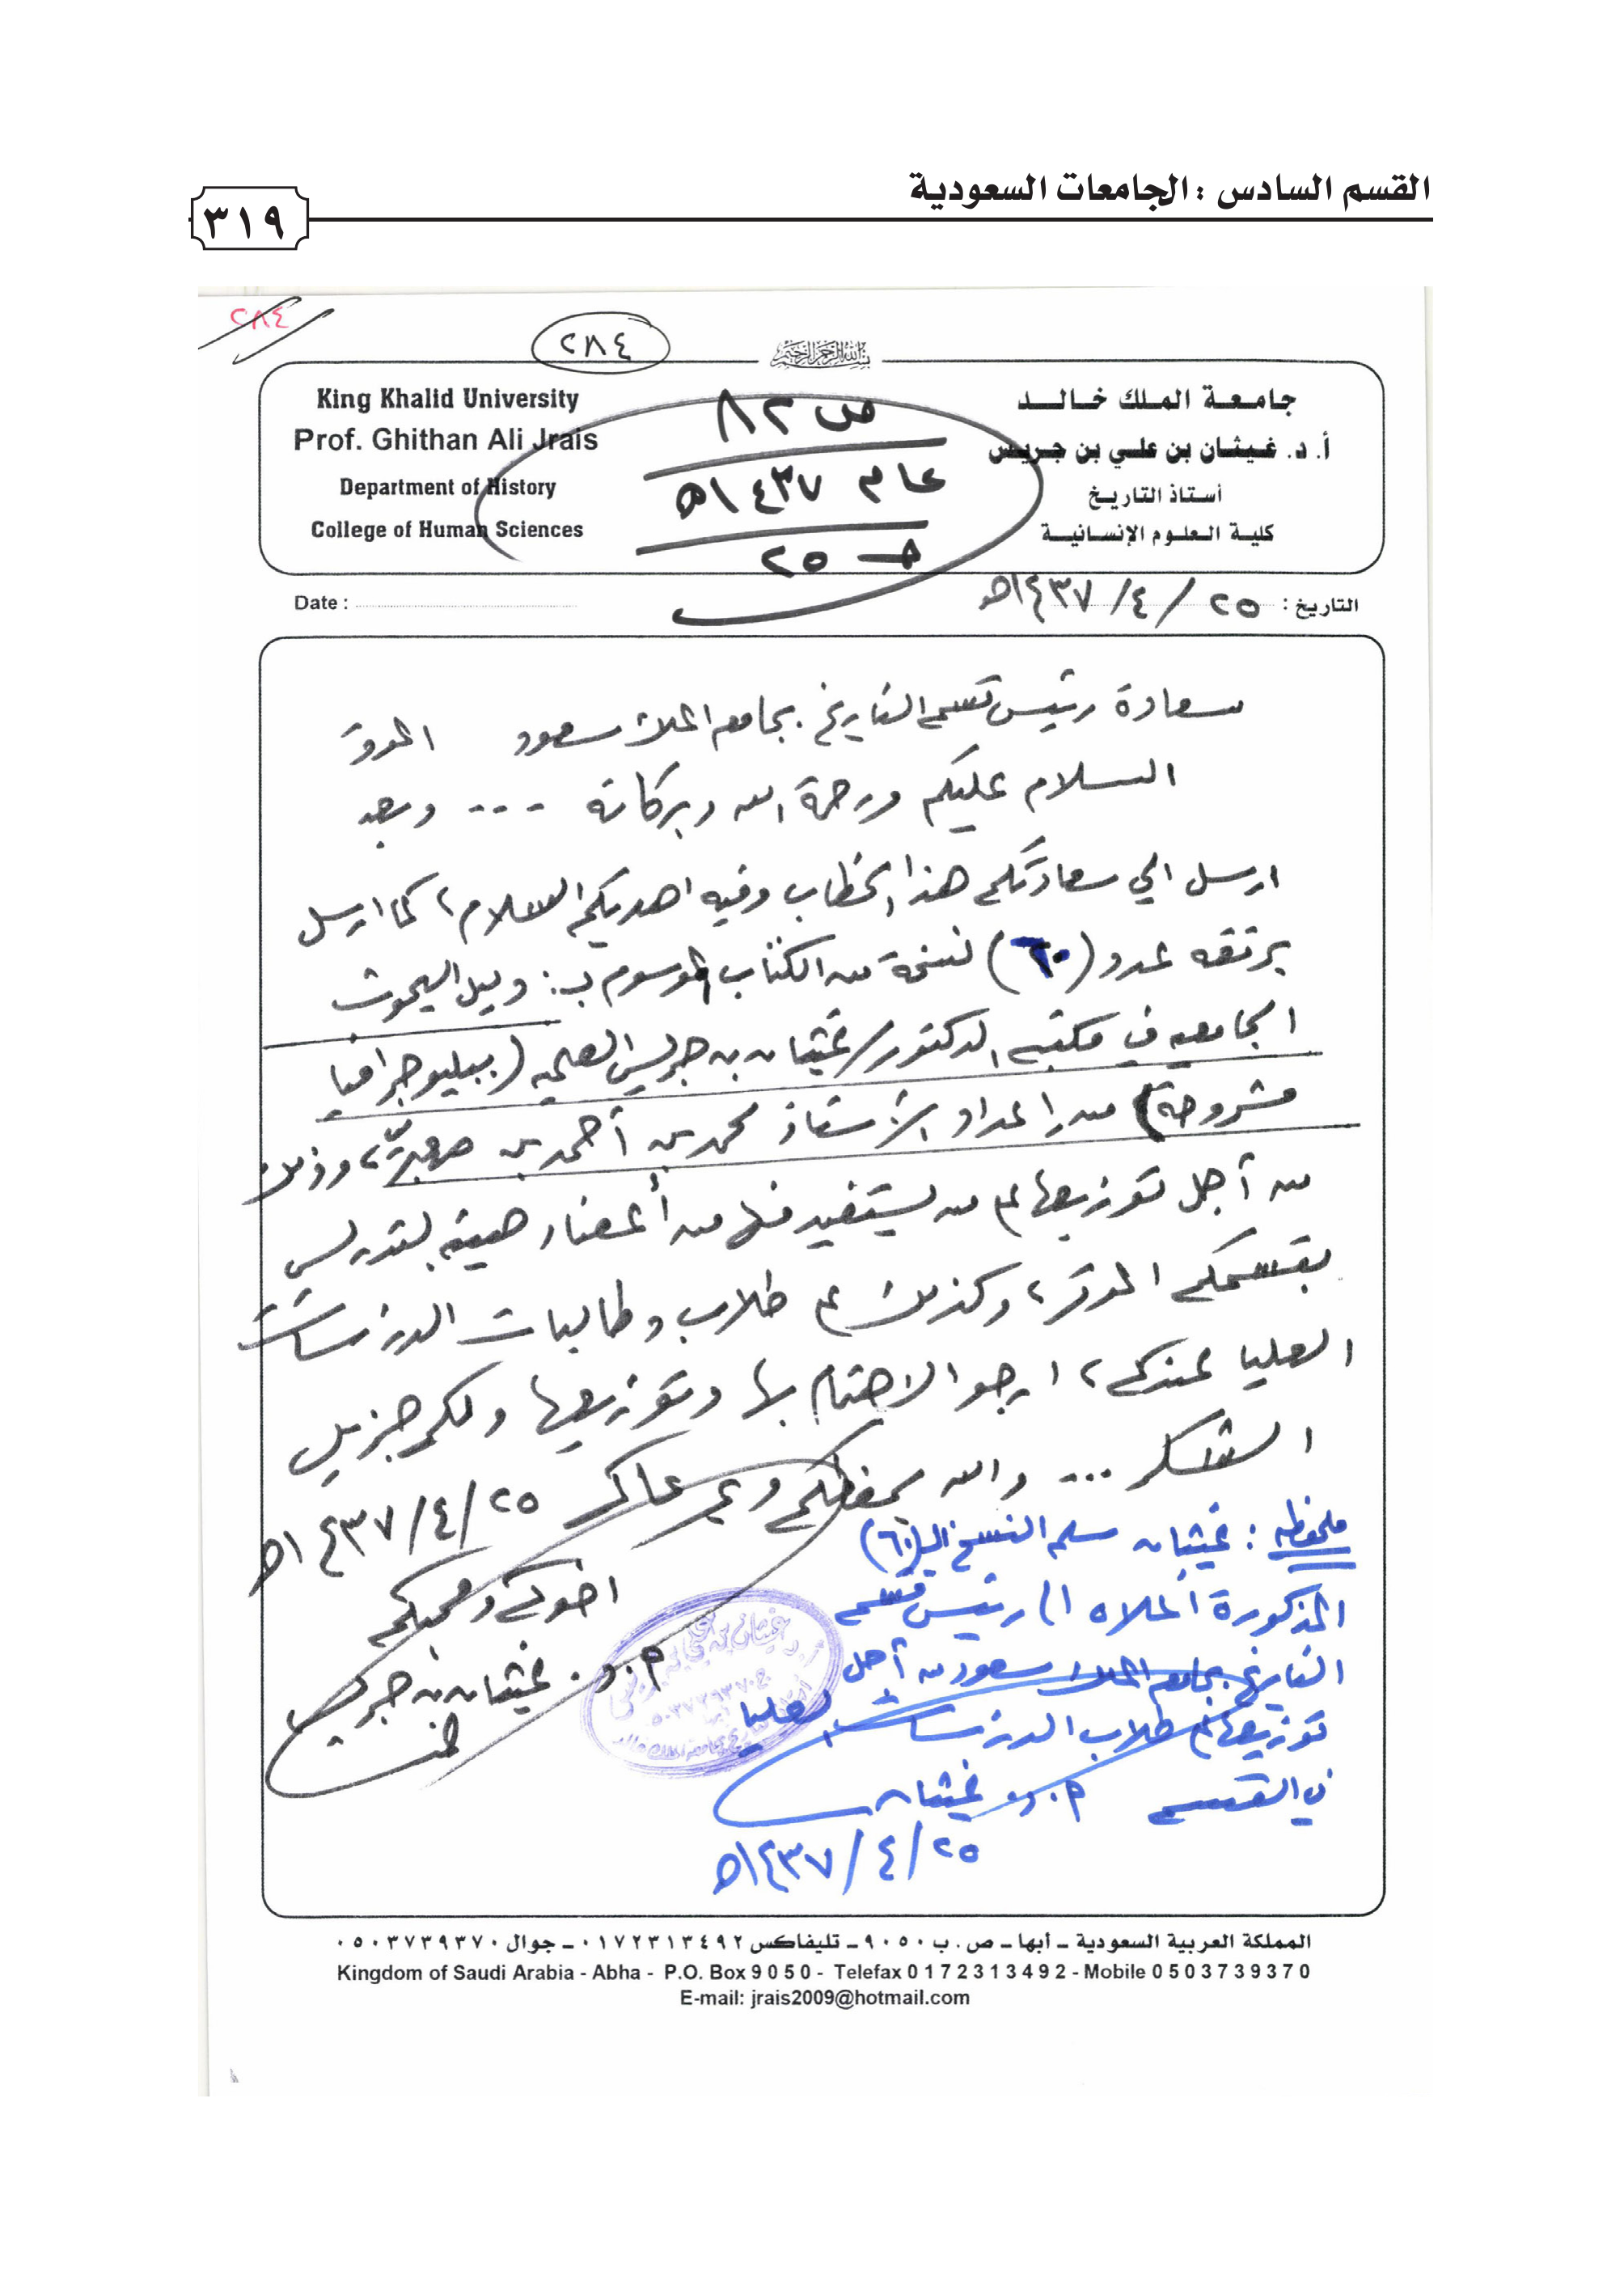 القسم السادس : الجامعات السعودية
٣١٩
٢٨٤
٢٨٤
بسم الله الرحمن الرحيم
King Khalid University
Prof. Ghithan Ali Jrais
Department of History
College of Human Sciences
ص ٨٢
عام ١٤٣٧هـ
حـ ٢٥
جامعة الملك خالد
أ. د. غيثان بن علي بن جريس
أستاذ التاريخ
كلية العلوم الإنسانية
Date :
التاريخ : ٢٥ / ٤ / ١٤٣٧هـ
سعادة رئيس قسم التاريخ بجامعة الملك سعود الموقر
السلام عليكم ورحمة الله وبركاته ... وبعد
ارسل الى سعادتكم هذا الخطاب وفيه اهديكم السلام، كما ارسل
برفقه عدد (٦٠) نسخة من الكتاب الموسوم بـ: دليل البحوث
الجامعية في مكتبة الدكتور/ غيثان بن جريس العلمية (ببليوجرافيا
مشروحة) من إعداد الأستاذ محمد بن أحمد بن معبر، وذلك
من أجل توزيعها على من يستفيد منها من أعضاء هيئة التدريس
بقسمكم الموقر، وكذلك على طلاب وطالبات الدراسات
العليا عندكم، ارجو الاهتمام بها وتوزيعها ولكم جزيل
الشكر ... والله يحفظكم ويرعاكم ٢٥/٤/١٤٣٧هـ
اخوكم ومحبكم
أ.د. غيثان بن جريس
ملحوظة : غيثان سلم النسخ الـ(٦٠)
المذكورة أعلاه الى رئيس قسم
التاريخ بجامعة الملك سعود من أجل
توزيعها على طلاب الدراسات العليا
في القسم أ.د. غيثان
٢٥/٤/١٤٣٧هـ
المملكة العربية السعودية - أبها - ص. ب ٩٠٥٠ - تليفاكس ٠١٧٢٣١٣٤٩٢ - جوال ٠٥٠٣٧٣٩٣٧٠
Kingdom of Saudi Arabia - Abha - P.O. Box 9 0 5 0 - Telefax 0 1 7 2 3 1 3 4 9 2 - Mobile 0 5 0 3 7 3 9 3 7 0
E-mail: jrais2009@hotmail.com